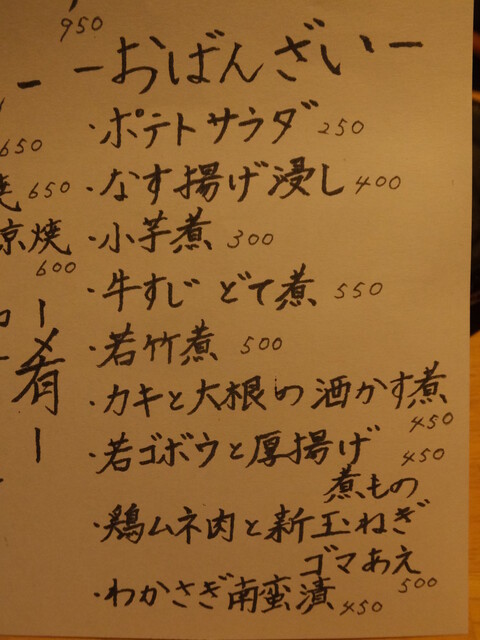 950
ーおばんざいー
・ポテトサラダ 250
・なす揚げ浸し 400
・小芋煮 300
・牛すじ どて煮 550
・若竹煮 500
・カキと大根の酒かす煮
450
・若ゴボウと厚揚げ 450
煮もの
・鶏ムネ肉と新玉ねぎ
ゴマあえ
500
・わかさぎ南蛮漬 450
650
焼 650
京焼
600
ー〆肴ー